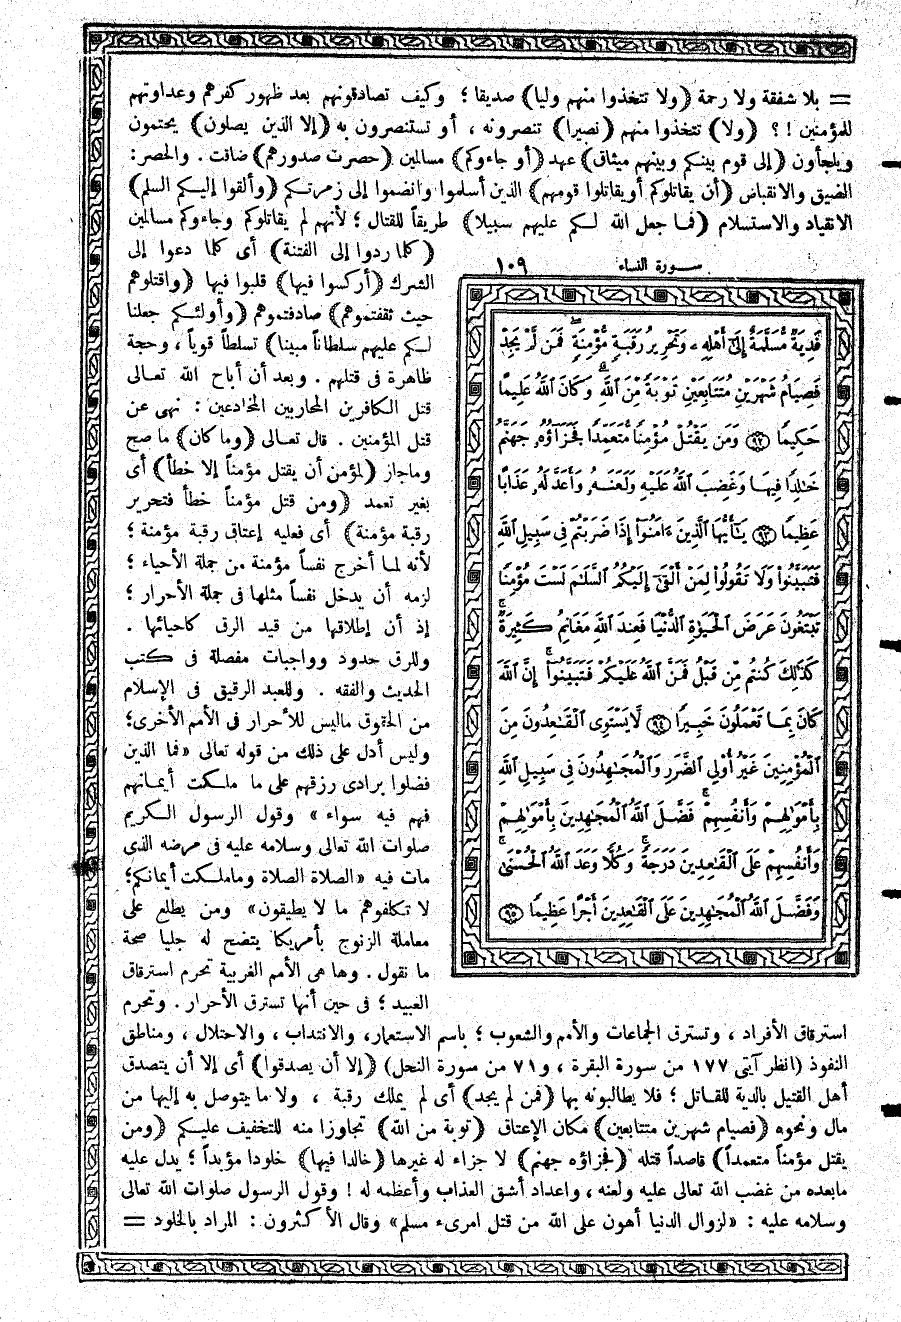 = بلا شفقة ولا رحمة (ولا تتخذوا منهم وليا) صديقا ؛ وكيف تصادقونهم بعد ظهور كفرهم وعداوتهم
للمؤمنين !؟ (ولا) تتخذوا منهم (نصيرا) تنصرونه ، أو تستنصرون به (إلا الذين يصلون) يحتمون
ويلجأون (إلى قوم بينكم وبينهم ميثاق) عهد (أو جاءوكم) مسالمين (حصرت صدورهم) ضاقت . والحصر:
الضيق والانقباض (أن يقاتلوكم أو يقاتلوا قومهم) الذين أسلموا وانضموا إلى زمرتكم (وألقوا إليكم السلم)
الانقياد والاستسلام (فما جعل الله لكم عليهم سبيلا) طريقاً للقتال ؛ لأنهم لم يقاتلوكم وجاءوكم مسالمين
(كلما ردوا إلى الفتنة) أى كلما دعوا إلى
الشرك (أركسوا فيها) قلبوا فيها (واقتلوهم
حيث ثقفتموهم) صادفتموهم (وأولئكم جعلنا
لكم عليهم سلطاناً مبينا) تسلطاً قوياً ، وحجة
ظاهرة فى قتلهم . وبعد أن أباح الله تعالى
قتل الكافرين المحاربين المخادعين : نهى عن
قتل المؤمنين . قال تعالى (وما كان) ما صح
وماجاز (لمؤمن أن يقتل مؤمناً إلا خطأ) أى
بغير تعمد (ومن قتل مؤمناً خطأ فتحرير
رقبة مؤمنة) أى فعليه إعتاق رقبة مؤمنة ؛
لأنه لما أخرج نفساً مؤمنة من جملة الأحياء ؛
لزمه أن يدخل نفساً مثلها فى جملة الأحرار ؛
إذ أن إطلاقها من قيد الرق كاحيائها .
وللرق حدود وواجبات مفصلة فى كتب
الحديث والفقه . وللعبد الرقيق فى الإسلام
من الحقوق ماليس للأحرار فى الأمم الأخرى؛
وليس أدل على ذلك من قوله تعالى «فما الذين
فضلوا برادى رزقهم على ما ملكت أيمانهم
فهم فيه سواء» وقول الرسول الكريم
صلوات الله تعالى وسلامه عليه فى مرضه الذى
مات فيه «الصلاة الصلاة وماملكت أيمانكم؛
لا تكلفوهم ما لا يطيقون» ومن يطلع على
معاملة الزنوج بأمريكا يتضح له جليا صحة
ما نقول . وها هى الأمم الغربية تحرم استرقاق
العبيد ؛ فى حين أنها تسترق الأحرار . وتحرم
سورة النساء ١٠٩
فَدِيَةٌ مُّسَلَّمَةٌ إِلَىٰٓ أَهْلِهِۦ وَتَحْرِيرُ رَقَبَةٍ مُّؤْمِنَةٍ فَمَن لَّمْ يَجِدْ
فَصِيَامُ شَهْرَيْنِ مُتَتَابِعَيْنِ تَوْبَةً مِّنَ ٱللَّهِ وَكَانَ ٱللَّهُ عَلِيمًا
حَكِيمًا ٩٢ وَمَن يَقْتُلْ مُؤْمِنًا مُّتَعَمِّدًا فَجَزَآؤُهُۥ جَهَنَّمُ
خَٰلِدًا فِيهَا وَغَضِبَ ٱللَّهُ عَلَيْهِ وَلَعَنَهُۥ وَأَعَدَّ لَهُۥ عَذَابًا
عَظِيمًا ٩٣ يَٰٓأَيُّهَا ٱلَّذِينَ ءَامَنُوٓا۟ إِذَا ضَرَبْتُمْ فِى سَبِيلِ ٱللَّهِ
فَتَبَيَّنُوا۟ وَلَا تَقُولُوا۟ لِمَنْ أَلْقَىٰٓ إِلَيْكُمُ ٱلسَّلَٰمَ لَسْتَ مُؤْمِنًا
تَبْتَغُونَ عَرَضَ ٱلْحَيَوٰةِ ٱلدُّنْيَا فَعِندَ ٱللَّهِ مَغَانِمُ كَثِيرَةٌ
كَذَٰلِكَ كُنتُم مِّن قَبْلُ فَمَنَّ ٱللَّهُ عَلَيْكُمْ فَتَبَيَّنُوٓا۟ إِنَّ ٱللَّهَ
كَانَ بِمَا تَعْمَلُونَ خَبِيرًا ٩٤ لَّا يَسْتَوِى ٱلْقَٰعِدُونَ مِنَ
ٱلْمُؤْمِنِينَ غَيْرُ أُو۟لِى ٱلضَّرَرِ وَٱلْمُجَٰهِدُونَ فِى سَبِيلِ ٱللَّهِ
بِأَمْوَٰلِهِمْ وَأَنفُسِهِمْ فَضَّلَ ٱللَّهُ ٱلْمُجَٰهِدِينَ بِأَمْوَٰلِهِمْ
وَأَنفُسِهِمْ عَلَى ٱلْقَٰعِدِينَ دَرَجَةً وَكُلًّا وَعَدَ ٱللَّهُ ٱلْحُسْنَىٰ
وَفَضَّلَ ٱللَّهُ ٱلْمُجَٰهِدِينَ عَلَى ٱلْقَٰعِدِينَ أَجْرًا عَظِيمًا ٩٥
استرقاق الأفراد ، وتسترق الجماعات والأمم والشعوب ؛ باسم الاستعمار، والانتداب ، والاحتلال ، ومناطق
النفوذ (انظر آيتى ١٧٧ من سورة البقرة ، و٧١ من سورة النحل) (إلا أن يصدقوا) أى إلا أن يتصدق
أهل القتيل بالدية للقاتل ؛ فلا يطالبونه بها (فمن لم يجد) أى لم يملك رقبة ، ولا ما يتوصل به إليها من
مال ونحوه (فصيام شهرين متتابعين) مكان الإعتاق (توبة من الله) تجاوزا منه للتخفيف عليكم (ومن
يقتل مؤمناً متعمداً) قاصداً قتله (فجزاؤه جهنم) لا جزاء له غيرها (خالدا فيها) خلودا مؤبداً ؛ يدل عليه
مابعده من غضب الله تعالى عليه ولعنه ، واعداد أشق العذاب وأعظمه له ! وقول الرسول صلوات الله تعالى
وسلامه عليه : «لزوال الدنيا أهون على الله من قتل امرىء مسلم» وقال الأكثرون : المراد بالخلود =